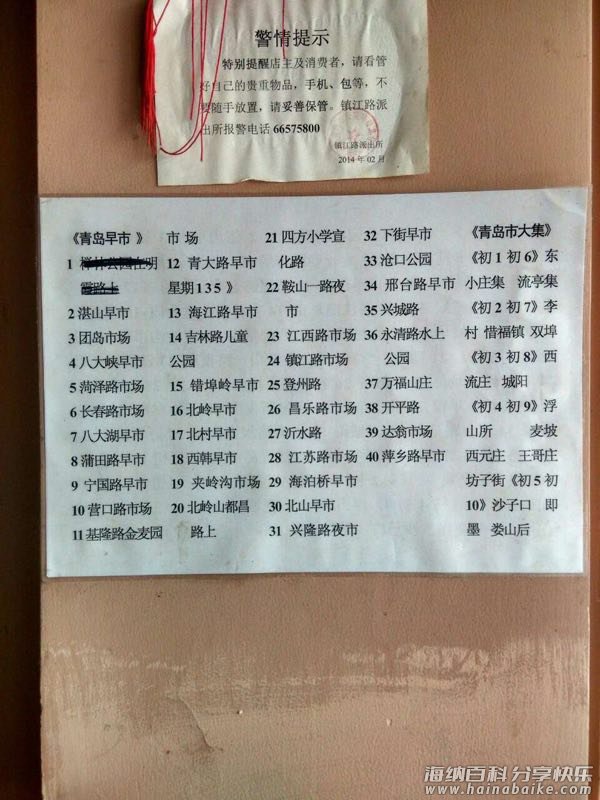 警情提示
特别提醒店主及消费者，请看管
好自己的贵重物品，手机、包等，不
要随手放置，请妥善保管。镇江路派
出所报警电话 66575800
镇江路派出所
2014 年 02 月
《青岛早市 》
1
霞路上
2 湛山早市
3 团岛市场
4 八大峡早市
5 菏泽路市场
6 长春路市场
7 八大湖早市
8 蒲田路早市
9 宁国路早市
10 营口路市场
11 基隆路金麦园
市 场
12 青大路早市
星期 1 3 5 》
13 海江路早市
14 吉林路儿童
公园
15 错埠岭早市
16 北岭早市
17 北村早市
18 西韩早市
19 夹岭沟市场
20 北岭山都昌
路上
21 四方小学宣
化路
22 鞍山一路夜
市
23 江西路市场
24 镇江路市场
25 登州路
26 昌乐路市场
27 沂水路
28 江苏路市场
29 海泊桥早市
30 北山早市
31 兴隆路夜市
32 下街早市
33 沧口公园
34 邢台路早市
35 兴城路
36 永清路水上
公园
37 万福山庄
38 开平路
39 达翁市场
40 萍乡路早市
《青岛市大集》
《初 1 初 6》东
小庄集 流亭集
《初 2 初 7》李
村 惜福镇 双埠
《初 3 初 8》西
流庄 城阳
《初 4 初 9》浮
山所 麦坡
西元庄 王哥庄
坊子街《初 5 初
10》沙子口 即
墨 娄山后
海纳百科 分享快乐
www.hainabaike.com